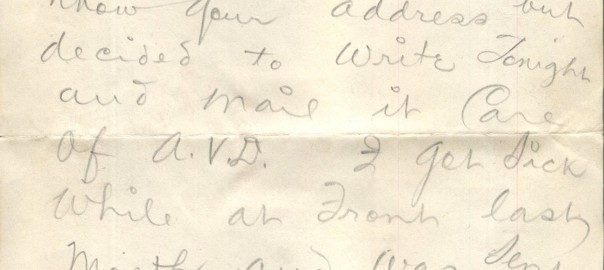 know your address but
decided to Write Tonight
and mail it Care
Of A.V.D. I got Sick
While at Front last
Month and Was Sent